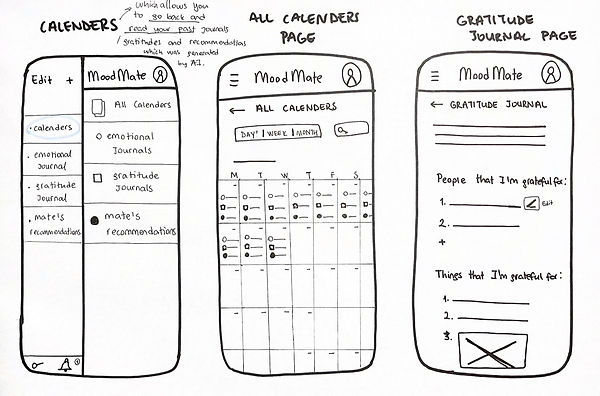 CALENDERS
which allows you
to go back and
read your past journals
/ gratitudes and recommendations
which was generated
by A.I.
Edit +
calenders
emotional
journal
gratitude
journal
mate's
recommendations
MoodMate
All Calenders
emotional
Journals
gratitude
Journals
mate's
recommendations
ALL CALENDERS
PAGE
MoodMate
← ALL CALENDERS
DAY | WEEK | MONTH
M T W T F S
GRATITUDE
JOURNAL PAGE
MoodMate
← GRATITUDE JOURNAL
People that I'm grateful for:
1. Edit
2.
+
Things that I'm grateful for:
1.
2.
3.